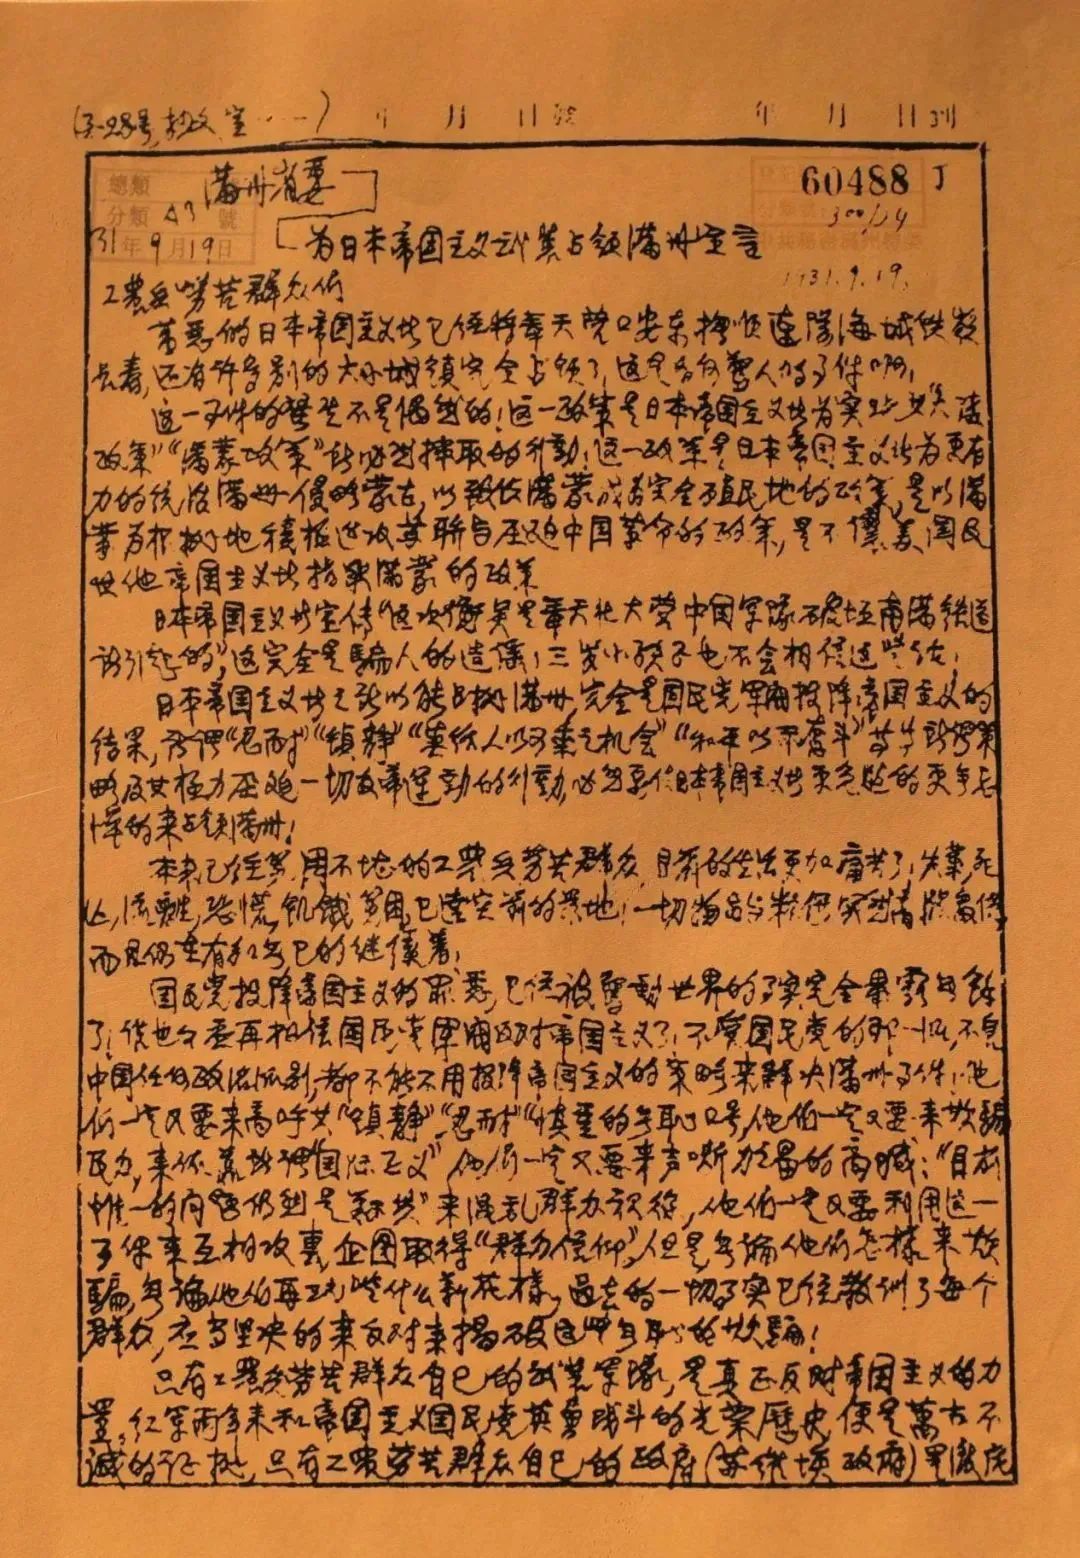 年 月 日 年 月 日到
總類
分類 號
年 月 日
满州省委
A3
31 9 19
60488 J
300/14
1931.9.19.
为日本帝国主义武装占领满洲宣言
工农兵劳苦群众们
万恶的日本帝国主义者已经将奉天营口安东抚顺辽阳海城铁岭
长春,还有许多别的大小城镇完全占领了,这是多么惊人的事件啊!
这一事件的发生不是偶然的!这一政策是日本帝国主义者为实现其大陆
政策”“满蒙政策”所必然采取的行动!这一政策是日本帝国主义者为更有
力的统治满洲侵略蒙古,以致使满蒙成为完全殖民地的政策,是以满
蒙为根据地积极进攻苏联与压迫中国革命的政策,是
其他帝国主义者 满蒙的政策
日本帝国主义者宣传“这次冲突是奉天北大营中国军队破坏南满铁道
所引起的”,这完全是骗人的造谣!三岁小孩子也不会相信这些话!
日本帝国主义者之所以能占据满洲,完全是国民党军阀投降帝国主义的
结果,所谓“忍耐”“镇静” “和平以不奋斗”等等 策
略及其极力压迫一切反帝运动的行动,必然要使日本帝国主义者更急进的更
的来占领满洲!
本来已经穷困不堪的工农兵劳苦群众,目前的生活更加痛苦了!失业死
亡,流离,恐慌,饥饿贫困,已达空前的 地!一切物品与粮食突然者 高涨
而且仍在有加无已的继续着!
国民党投降帝国主义的罪恶,已经被惊动世界的事实完全暴露无余
了!谁也不要再相信国民党军阀反对帝国主义了!不管国民党的那一派,不管
中国任何政治派别,都不能不用投降帝国主义的策略来解决满洲事件!他
们一定又要来高呼其“镇静”“忍耐”“慎重的无耻口号,他们一定又要来欺骗
民众,来依靠所谓“国际正义”他们一定又要来声嘶力竭的高喊:“目前
惟一的问题仍然是剿共”来混乱群众视线,他们一定又要利用这一
事件来互相攻袭,企图取得“群众信仰”,但是无论他们怎样来欺
骗,无论他们再玩些什么新花样,过去的一切事实已经教训了每个
群众,应当坚决的来反对来揭破这些无耻的欺骗!
只有工农兵劳苦群众自己的武装军队,是真正反对帝国主义的力
量,红军两年来和帝国主义国民党英勇战斗的光荣历史,便是万古不
灭的证据,只有工农劳苦群众自己的政府(苏维埃政府)是彻底